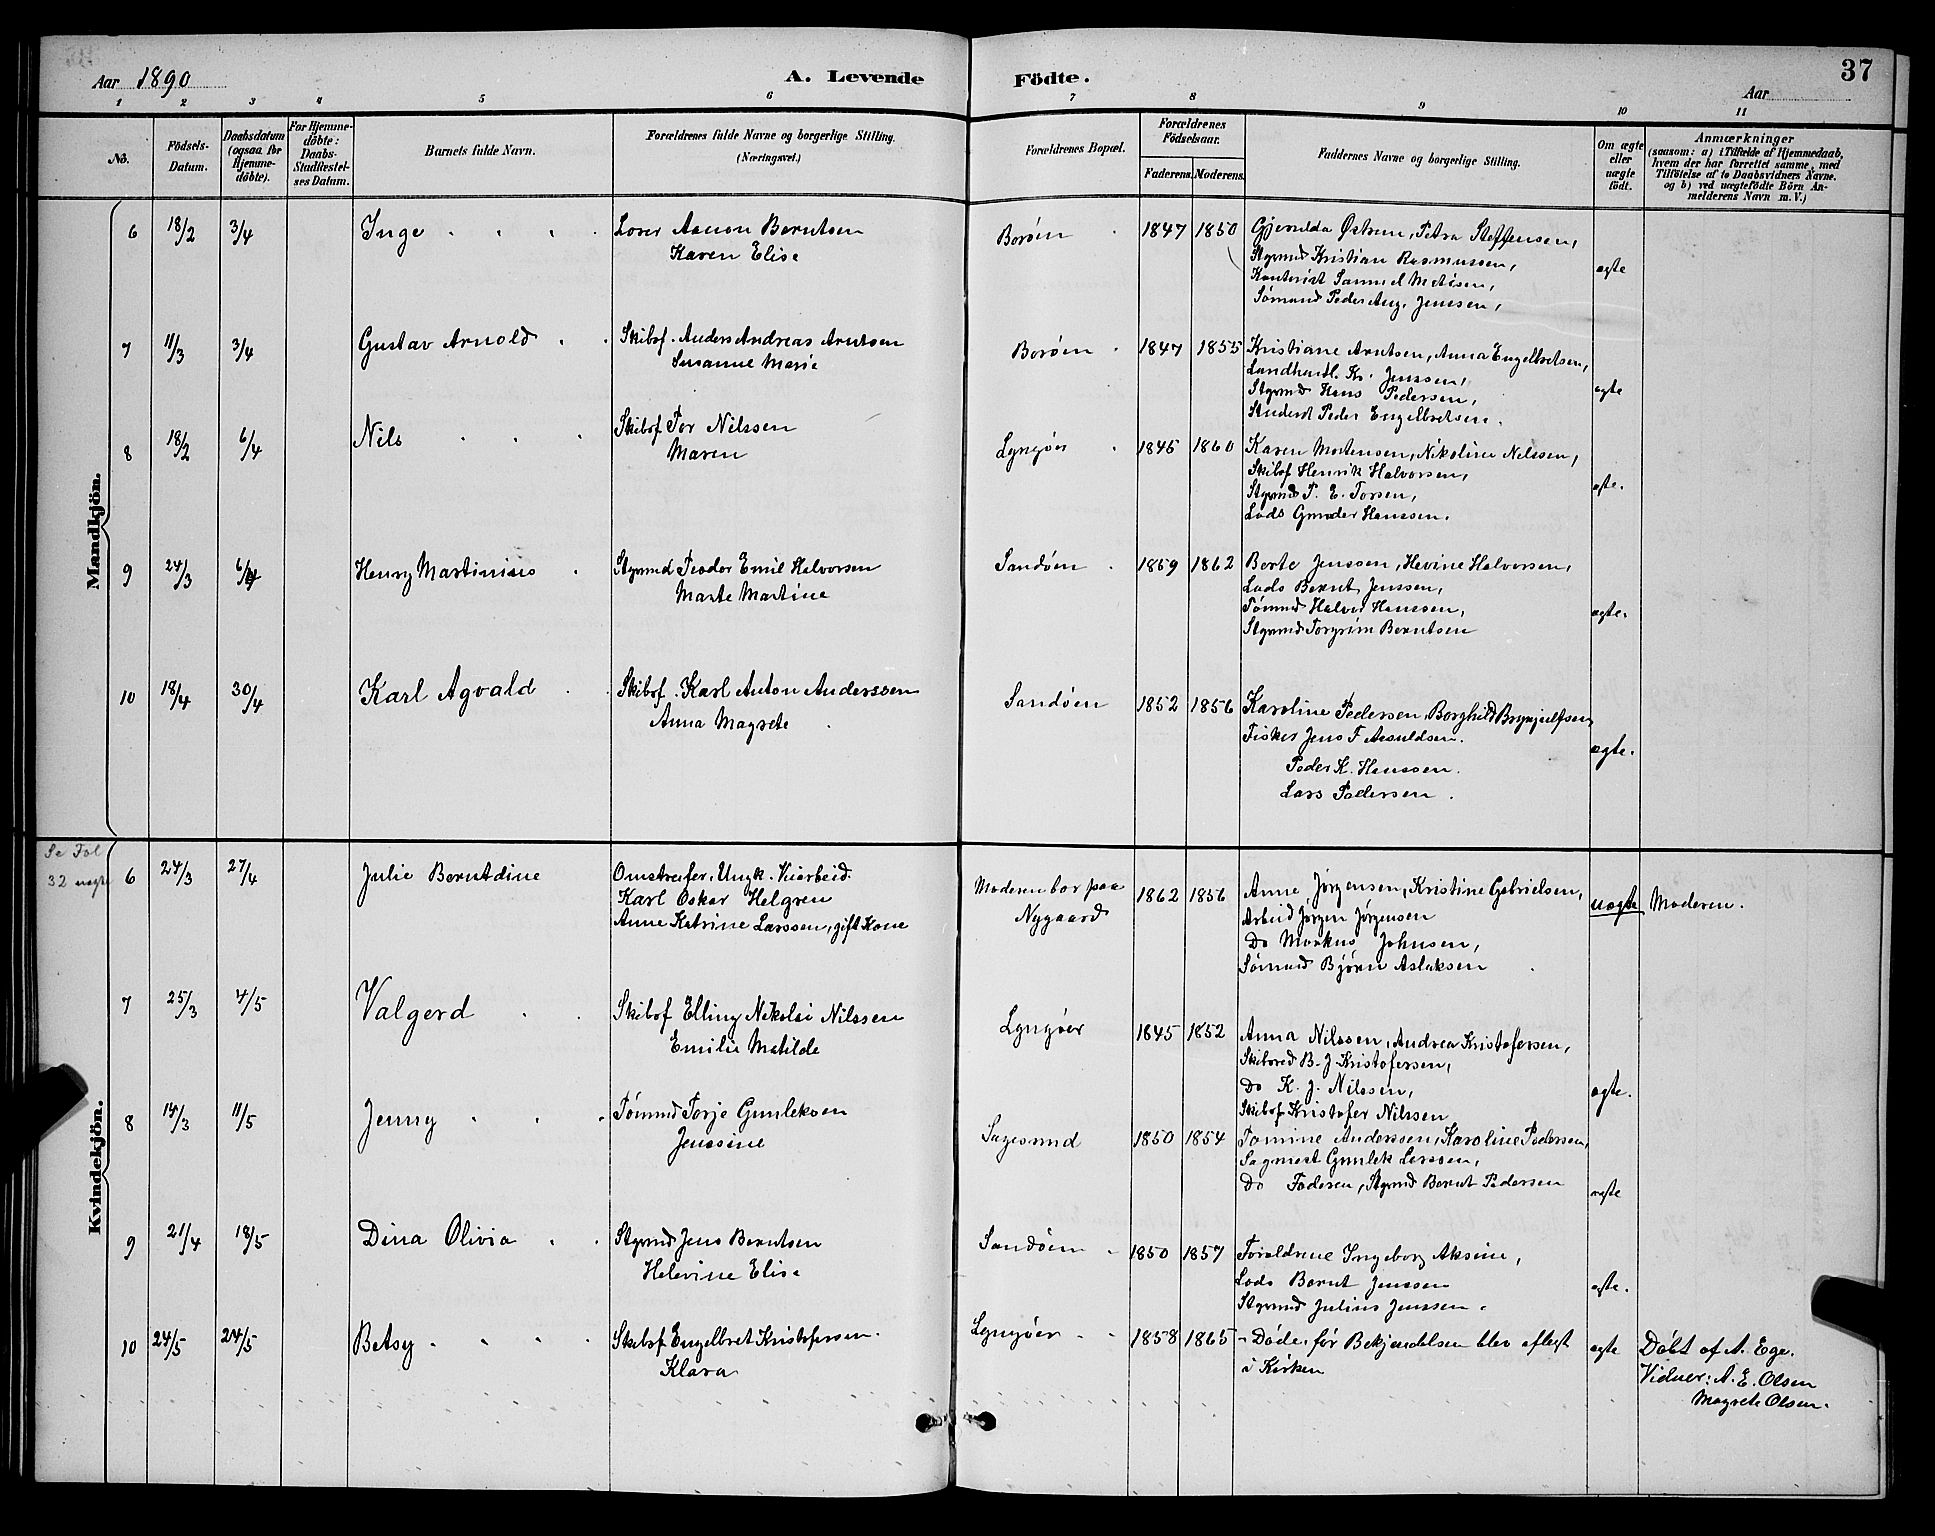 Aar 1890
A. Levende Födte.
37
Aar
1 2 3 4 5 6 7 8 9 10 11
No.
Födsels-Datum.
Daabsdatum (ogsaa for Hjemme-döbte).
For Hjemme-döbte: Daabs-Stadfæstel-ses Datum.
Barnets fulde Navn.
Forældrenes fulde Navne og borgerlige Stilling. (Næringsvei.)
Forældrenes Bopæl.
Forældrenes Födselsaar.
Faderens. Moderens.
Faddernes Navne og borgerlige Stilling.
Om ægte eller uægte födt.
Anmærkninger
(saasom: a) i Tilfælde af Hjemmedaab,
hvem der har forrettet samme, med
Tilföielse af to Daabsvidners Navne.
og b) ved uægtefödte Börn An-
melderens Navn m. V.)
Mandkjön.
6 18/2 3/4 Inge Aanon Berntsen Borøen 1847 1850 Østrem, Petra Steffensen,
Karen Elise
Styrmd Kristian Rasmussen,
ægte
Kontorist Samuel
Sømand Peder Aug. Jenssen,
7 11/3 3/4 Gustav Arnold Skibsf. Anders Andreas Arntsen Borøen 1847 1855 Kristiane Arntsen, Anna Engelbretsen,
Susanne Marie
Landhandl. Kr. Jenssen,
Styrmd Hans Pedersen,
ægte
Student Peder Engelbretsen.
8 18/2 6/4 Nils Skibsf Tor Nilssen Lyngøer 1845 1860 Karen Mortensen, Nikoline Nilssen,
Maren
Skibsf Henrik Halvorsen,
Styrmd T. E. Torsen,
ægte.
Lods Gunder Hanssen.
9 24/3 6/4 Henry Martinius Styrmd Teodor Emil Halvorsen Sandøen 1859 1862 Berte Jenssen, Hevine Halvorsen,
Marte Martine
Lods Bernt Jenssen,
Tømmd Halvor Hanssen,
ægte.
Styrmd Torgrim Berntsen
10 18/4 30/4 Karl Agvald Skibsf. Karl Anton Anderssen Sandøen 1852 1856 Karoline Pedersen, Borghild Brynjulfsen,
Anna Magrete
Fisker Jens T
ægte.
Peder K. Hanssen.
Lars Pedersen.
Kvindekjön.
Se Fol
32 uægte
6 24/3 27/4 Julie Berntdine Omstreifer, Ungk. Moderen bor paa Nygaard 1862 1856 Anne Jørgensen, Kristine Gabrielsen, uægte Moderen.
Karl Oskar Helgren
Anne Katrine Larssen, gift Kone
Arbeid Jørgen Jørgensen
Do Markus Johnsen,
Sømand Bjørn Aslaksen
7 25/3 4/5 Valgerd Skibsf Elling Nikolai Nilssen Lyngøer 1845 1852 Anna Nilssen, Andrea Kristofersen,
Emilie Matilde
Skibsred B. J Kristofersen,
Do K. J. Nilssen,
ægte.
Skibsf Kristofer Nilssen
8 14/3 11/5 Jenny Tømmd Torje Gunleksen Sagesund 1850 1854 Tomine Anderssen, Karoline Pedersen,
Jenssine
Sagmest Gunlek Larssen,
Do Faderen, Styrmd Bernt Pedersen
ægte
9 21/4 18/5 Dina Olivia Styrmd Jens Berntsen Sandøen 1850 1857 Forældrene Ingeborg Aksine,
Helevine Elise
Lods Bernt Jenssen
ægte.
Styrmd Julius Jenssen.
10 24/5 24/5 Betsy Skibsf Engelbret Kristofersen. Lyngøer 1858 1865 - Døde, før Bekjendelsen blev aflagt ægte Døbt af A. Ege.
Klara
i Kirken
Vidner: A. E. Olsen
Magrete Olsen.